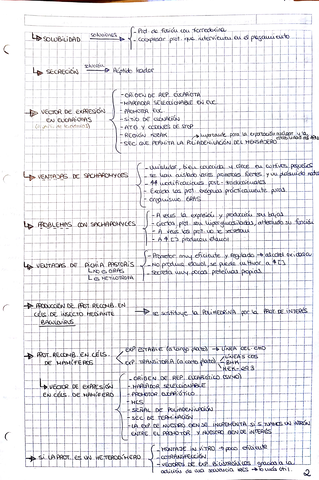 ↳ SOLUBILIDAD soluciones
- Prot. de fusión con tiorredoxina
- coexpresar prot. que intervienen en el plegamiento
↳ SECRECIÓN → Péptido líder
↳ VECTOR DE EXPRESIÓN EN EUCARIOTAS
- ORIGEN DE REP. EUCARIOTA
- MARCADOR SELECCIONABLE EN EUC.
- PROMOTOR EUC.
- SITIO DE CLONACIÓN
- ATG Y CODONES DE STOP
- REGIÓN KOZAK → importante para la
- SEC QUE PERMITA LA POLIADENILACIÓN DEL MENSAJERO
↳ VENTAJAS DE SACHAROMYCES
- unicelular, bien conocida y crece en cultivos pequeños
- se han aislado varios promotores fuertes y un plásmido
- ++ modificaciones post-traduccionales
- organismo GRAS
↳ PROBLEMAS CON SACHAROMYCES
- A veces la expresión y producción son bajas
- A veces las prot. no se secretan
- A ↑[ ] producen etanol
↳ VENTAJAS DE PICHIA PASTORIS
↳ NO ES GRAS
↳ ES METILOTROFA
- Promotor muy eficiente y regulado → alcohol oxidasa
- No produce etanol, se puede cultivar a ↑[ ]
- Secreta muy pocas proteínas propias
↳ PRODUCCIÓN DE PROT. RECOMB. EN CÉLS. DE INSECTO MEDIANTE BACULOVIRUS → se sustituye la POLIHEDRINA por la PROT. DE INTERÉS
↳ PROT. RECOMB. EN CÉLS. DE MAMÍFEROS
EXP. ESTABLE (a largo plazo) → LÍNEA DEL CHO
EXP. TRANSITORIA (a corto plazo)
- LÍNEAS COS
- BHK
- HEK-293
↳ VECTOR DE EXPRESIÓN EN CÉLS. DE MAMÍFERO
- ORIGEN DE REP. EUCARIÓTICO (SV40)
- MARCADOR SELECCIONABLE
- PROMOTOR EUCARIÓTICO
- MCS
- SEÑAL DE POLIADENILACIÓN
- SEC DE TERMINACIÓN
- LA EXP. DE NUESTRO GEN SE INCREMENTA SI SITUAMOS UN INTRÓN ENTRE EL PROMOTOR Y NUESTRO GEN DE INTERÉS
↳ SI LA PROT. ES UN HETERODÍMERO
- MONTAJE IN VITRO → poco eficiente
- COTRANSFECCIÓN
- VECTORES DE EXP. BICISTRÓNICOS gracias a la adición de una secuencia IRES
2